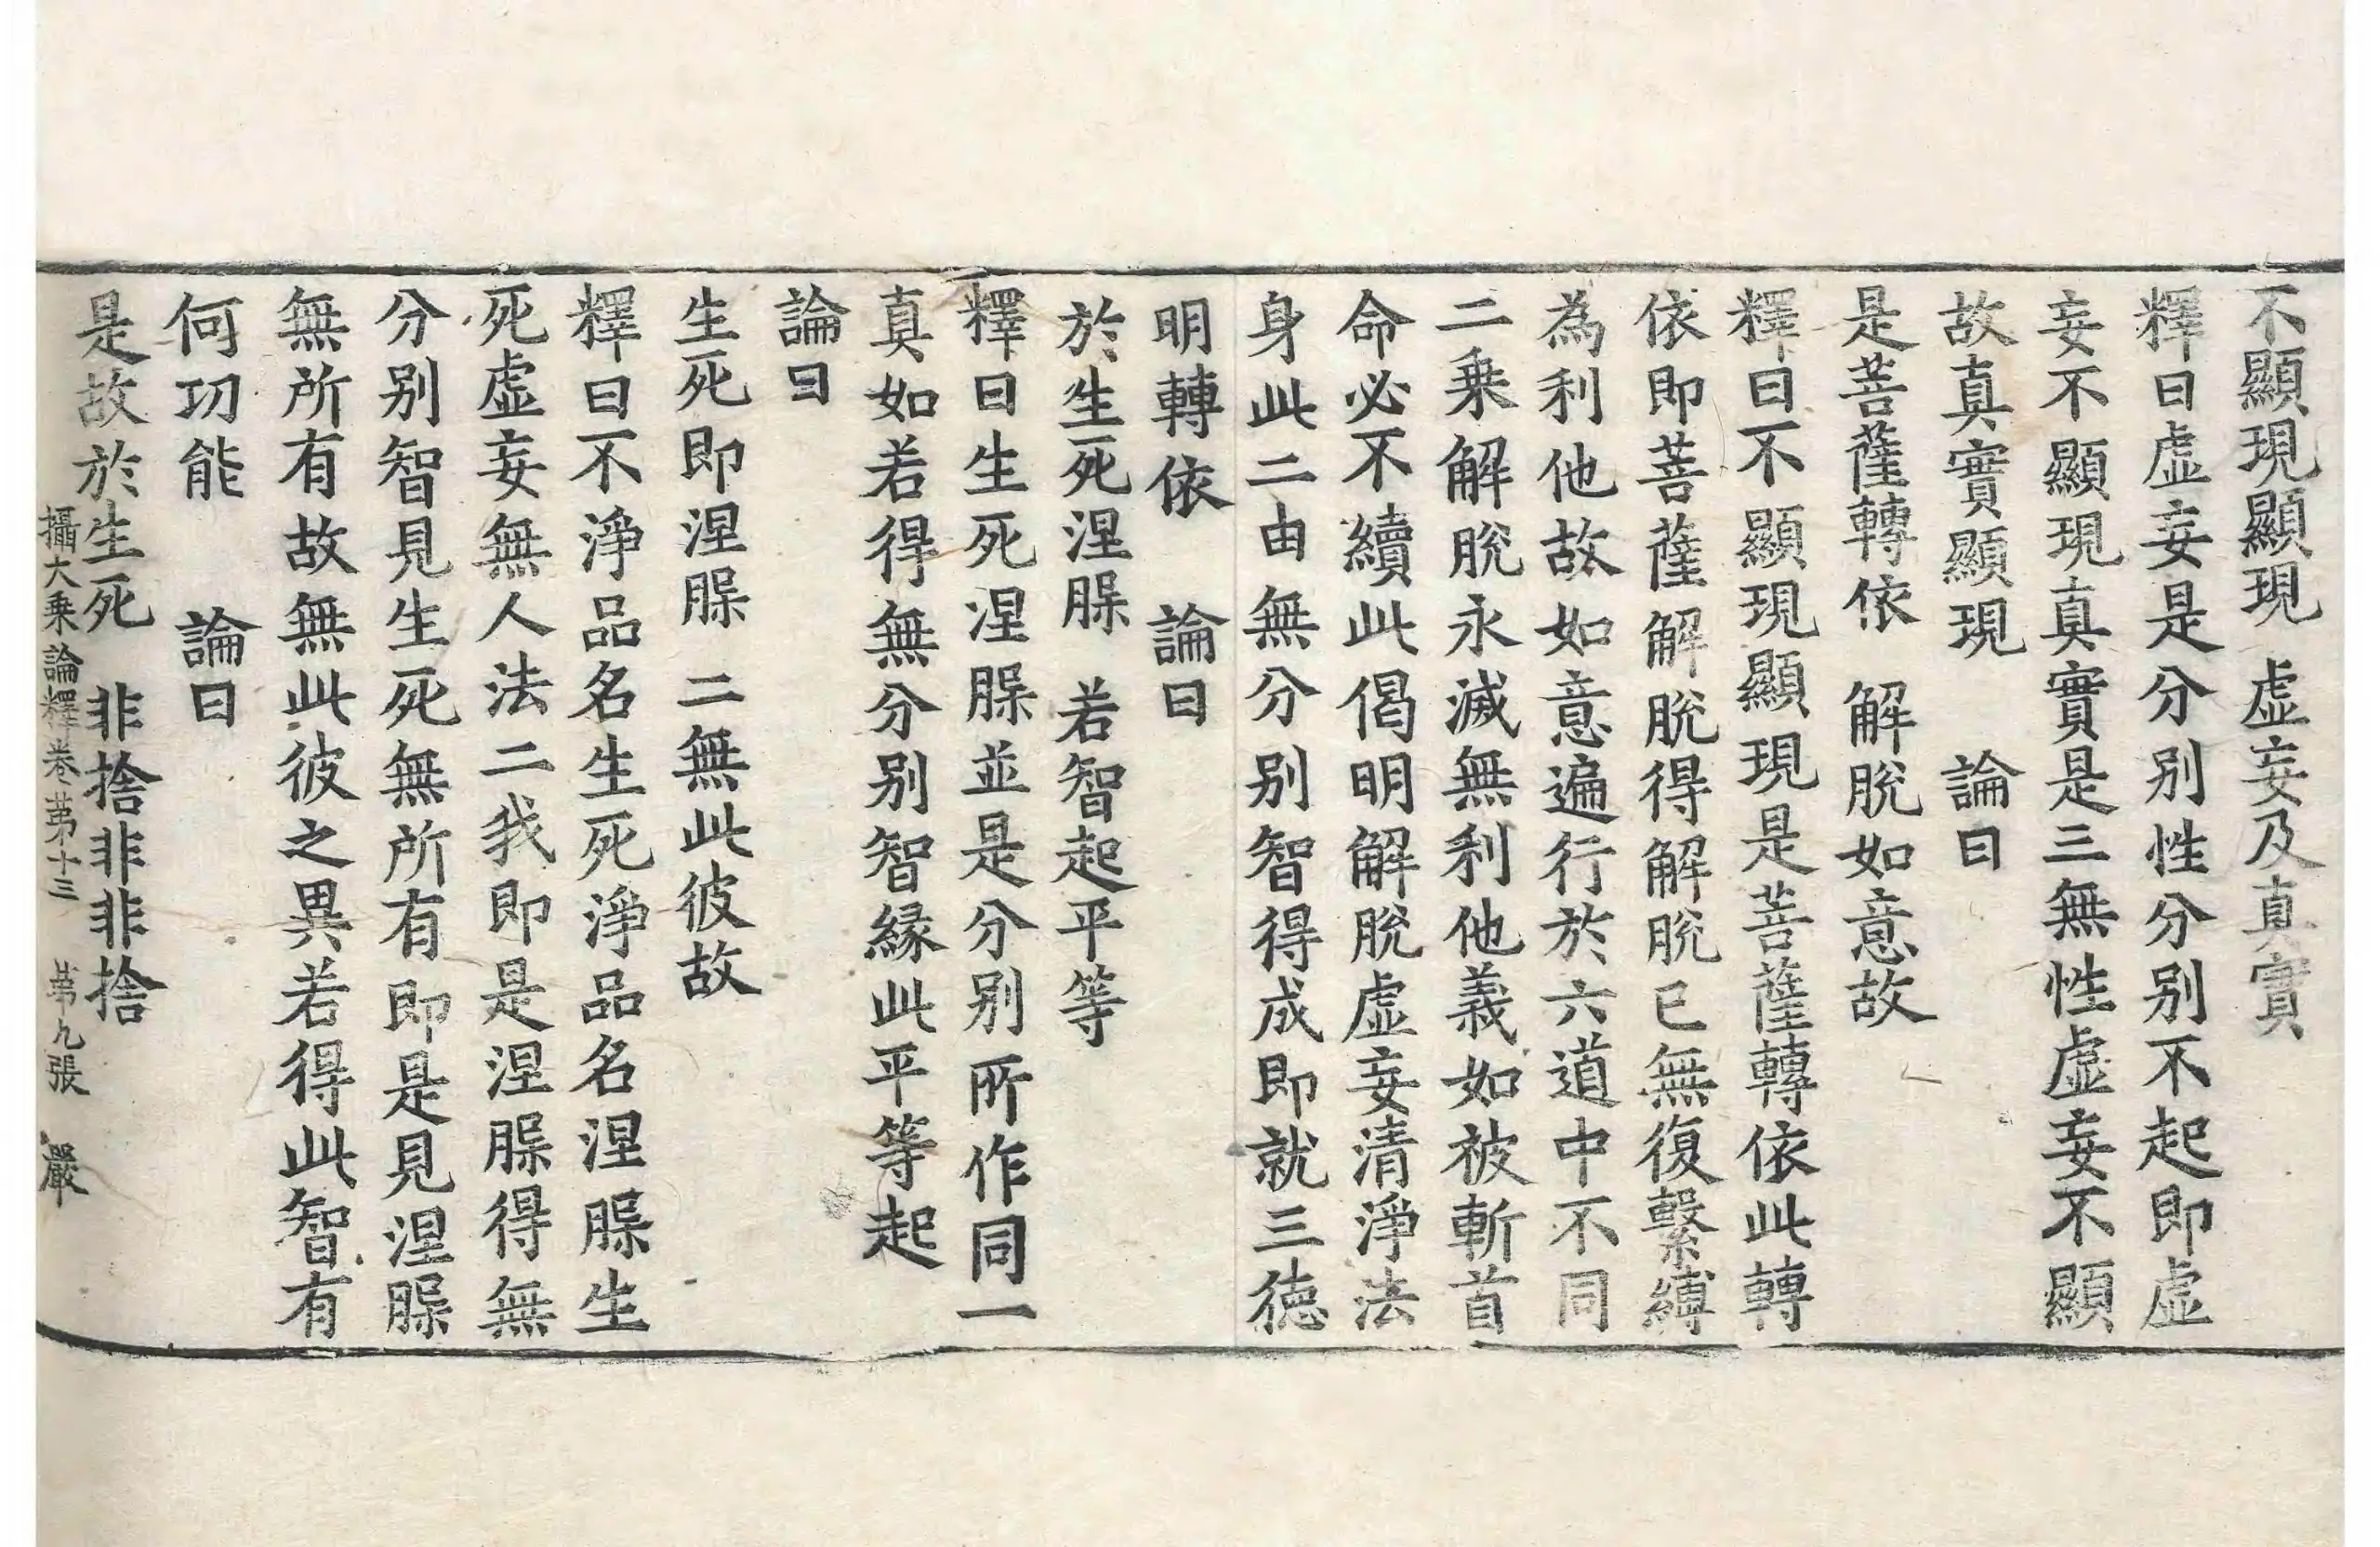 不顯現顯現　虛妄及真實
釋曰虛妄是分別性分別不起即虛
妄不顯現真實是三無性虛妄不顯
故真實顯現　論曰
是菩薩轉依　解脫如意故
釋曰不顯現顯現是菩薩轉依此轉
依即菩薩解脫得解脫已無復繫縛
為利他故如意遍行於六道中不同
二乘解脫永滅無利他義如被斬首
命必不續此偈明解脫虛妄清淨法
身此二由無分別智得成即就三德
明轉依　論曰
於生死涅槃　若智起平等
釋曰生死涅槃並是分別所作同一
真如若得無分別智緣此平等起
論曰
生死即涅槃　二無此彼故
釋曰不淨品名生死淨品名涅槃生
死虛妄無人法二我即是涅槃得無
分別智見生死無所有即是見涅槃
無所有故無此彼之異若得此智有
何功能　論曰
是故於生死　非捨非非捨
攝大乘論釋卷苐十三　苐九張　嚴